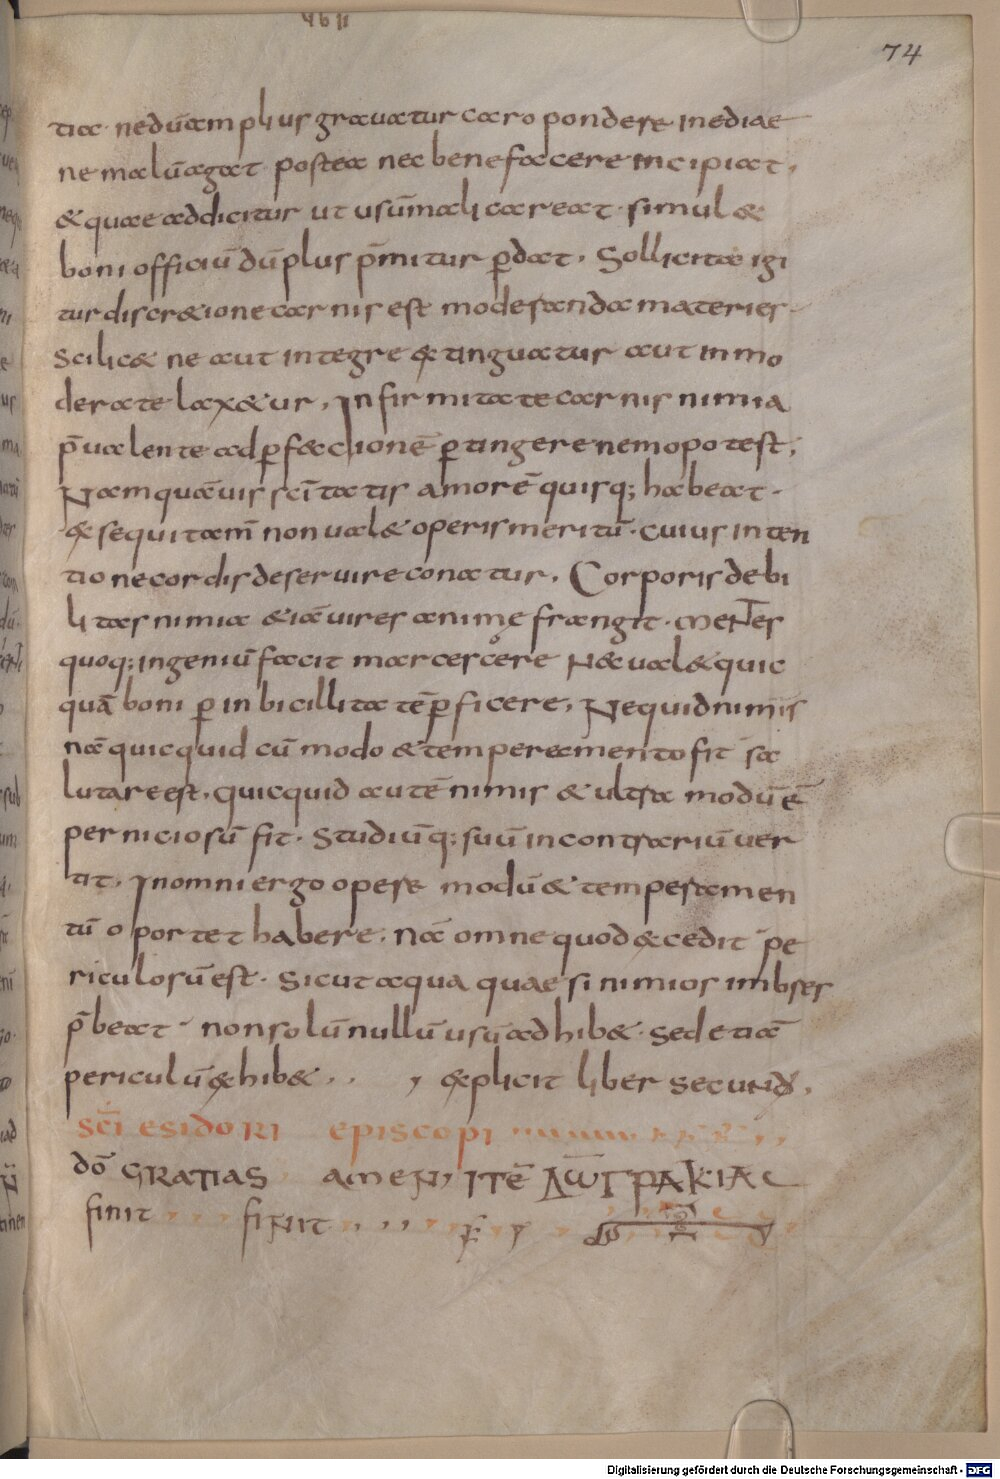 74
tiae · nedūamplius gravatur caro pondere mediae
ne malū agat postea nec bene facere incipiat.
& quae addicitur ut usūmali careat · simul &
boni officiū dū plus p̄mitur p̱dat. Sollicita igi
tur discr&ione carnis est moderanda materies·
Scilic& ne aut integre extinguatur aut inmo
derate lax&ur. Infirmitate carnis nimia
p̄valente ad p̱fectionē p̱tingere nemo potest;
Nam quāvis sc̄itatis amorē quisq; habeat·
exsequi tam̄ non val& operis meritū · cuius inten
tione cordis deservire conatur. Corporis debi
litas nimia &iā vires animę frangit · mentes
quoq; ingeniū facit marcescere Nec val& quic
quā boni p̱ inbicillitatē p̱ficere. Nequid nimiis
nā quicquid cū modo & temperamento fit sa
lutare est. quicquid autē nimis & ultra modū ē
perniciosū fit. Studiūq; suū in contrariū ver
tit. In omni ergo opere modū & temperamen
tū oportet habere. nā omne quod excedit pe
riculosū est. Sicut aqua quae si nimios imbres
p̄beat · non solū nullū usū adhib& · sed etiā
periculū exhib&. explicit liber secund.
sc̄i esidori episcopi
dō GRATIAS AMEN ITĒ
finit finit
Digitalisierung gefördert durch die Deutsche Forschungsgemeinschaft - DFG